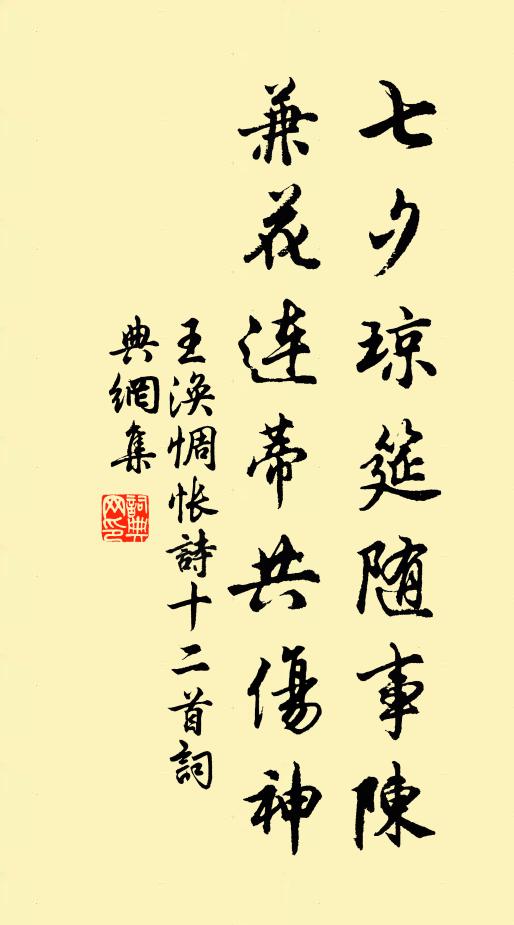 七夕琼筵随事陳
兼花連蒂共傷神
王渙惆怅詩十二首詞
典網集
詞典網印